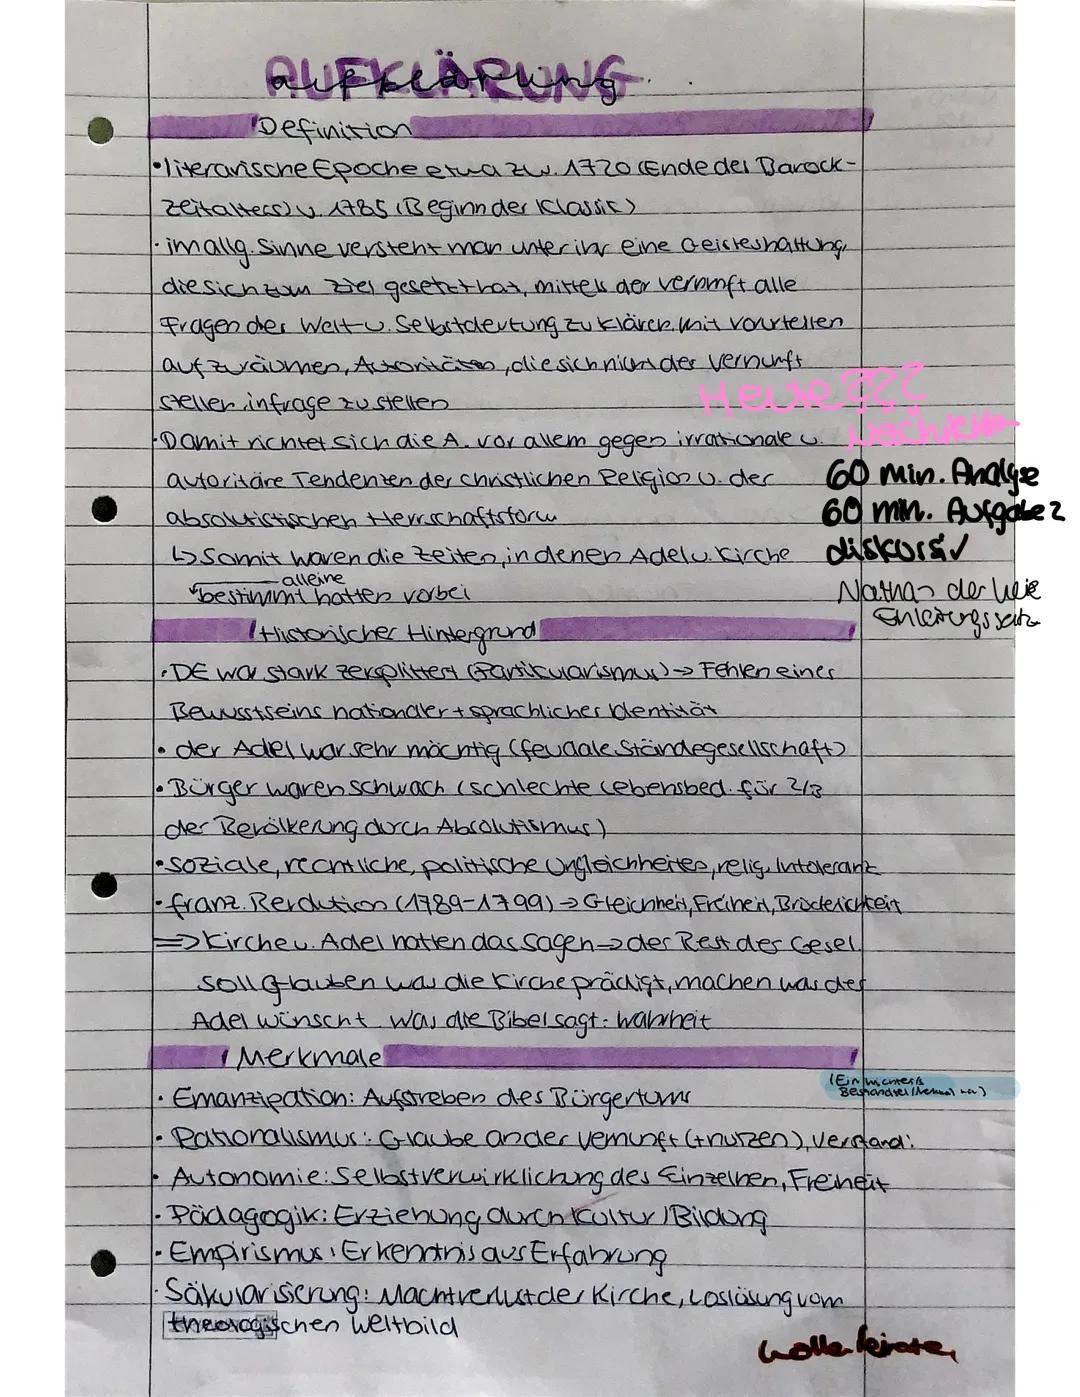 AUFKLÄRUNG
aufklärung
Definition
• literarische Epoche etwa zw. 1720 (Ende des Barock-
zeitalters) u. 1785 (Beginn der Klassik)
• im allg. Sinne versteht man unter ihr eine Geisteshaltung,
die sich zum Ziel gesetzt hat, mittels der Vernunft alle
Fragen der Welt- u. Selbstdeutung zu klären, mit Vorurteilen
aufzuräumen, Autoritäten, die sich nicht der Vernunft
stellen, infrage zu stellen
Heute???
• Damit richtet sich die A. vor allem gegen irrationale u.
autoritäre Tendenzen der christlichen Religion u. der
absolutistischen Herrschaftsform
↳ Somit waren die Zeiten, in denen Adel u. Kirche
alleine
bestimmt hatten vorbei
60 min. Analyse
60 min. Aufgabe 2
diskursiv
Nathan der Weie
Historischer Hintergrund
• DE war stark zersplittert (Partikularismus) → Fehlen eines
Bewusstseins nationaler + sprachlicher Identität
• der Adel war sehr mächtig (feudale Ständegesellschaft)
• Bürger waren schwach (schlechte Lebensbed. für 2/3
der Bevölkerung durch Absolutismus)
• soziale, rechtliche, politische Ungleichheiten, relig. Intoleranz
• franz. Revolution (1789-1799) → Gleichheit, Freiheit, Brüderlichkeit
=> Kirche u. Adel hatten das sagen → der Rest der Gesel.
soll glauben was die Kirche prädigt, machen was der
Adel wünscht was die Bibel sagt = Wahrheit
Merkmale
(Ein wichtiger
• Emanzipation: Aufstreben des Bürgertums
• Rationalismus: Glaube an der Vernunft (+nutzen), Verstand
• Autonomie: Selbstverwirklichung des Einzelnen, Freiheit
• Pädagogik: Erziehung durch Kultur / Bildung
• Empirismus: Erkenntnis aus Erfahrung
• Säkularisierung: Machtverlust der Kirche, Loslösung vom
theologischen Weltbild